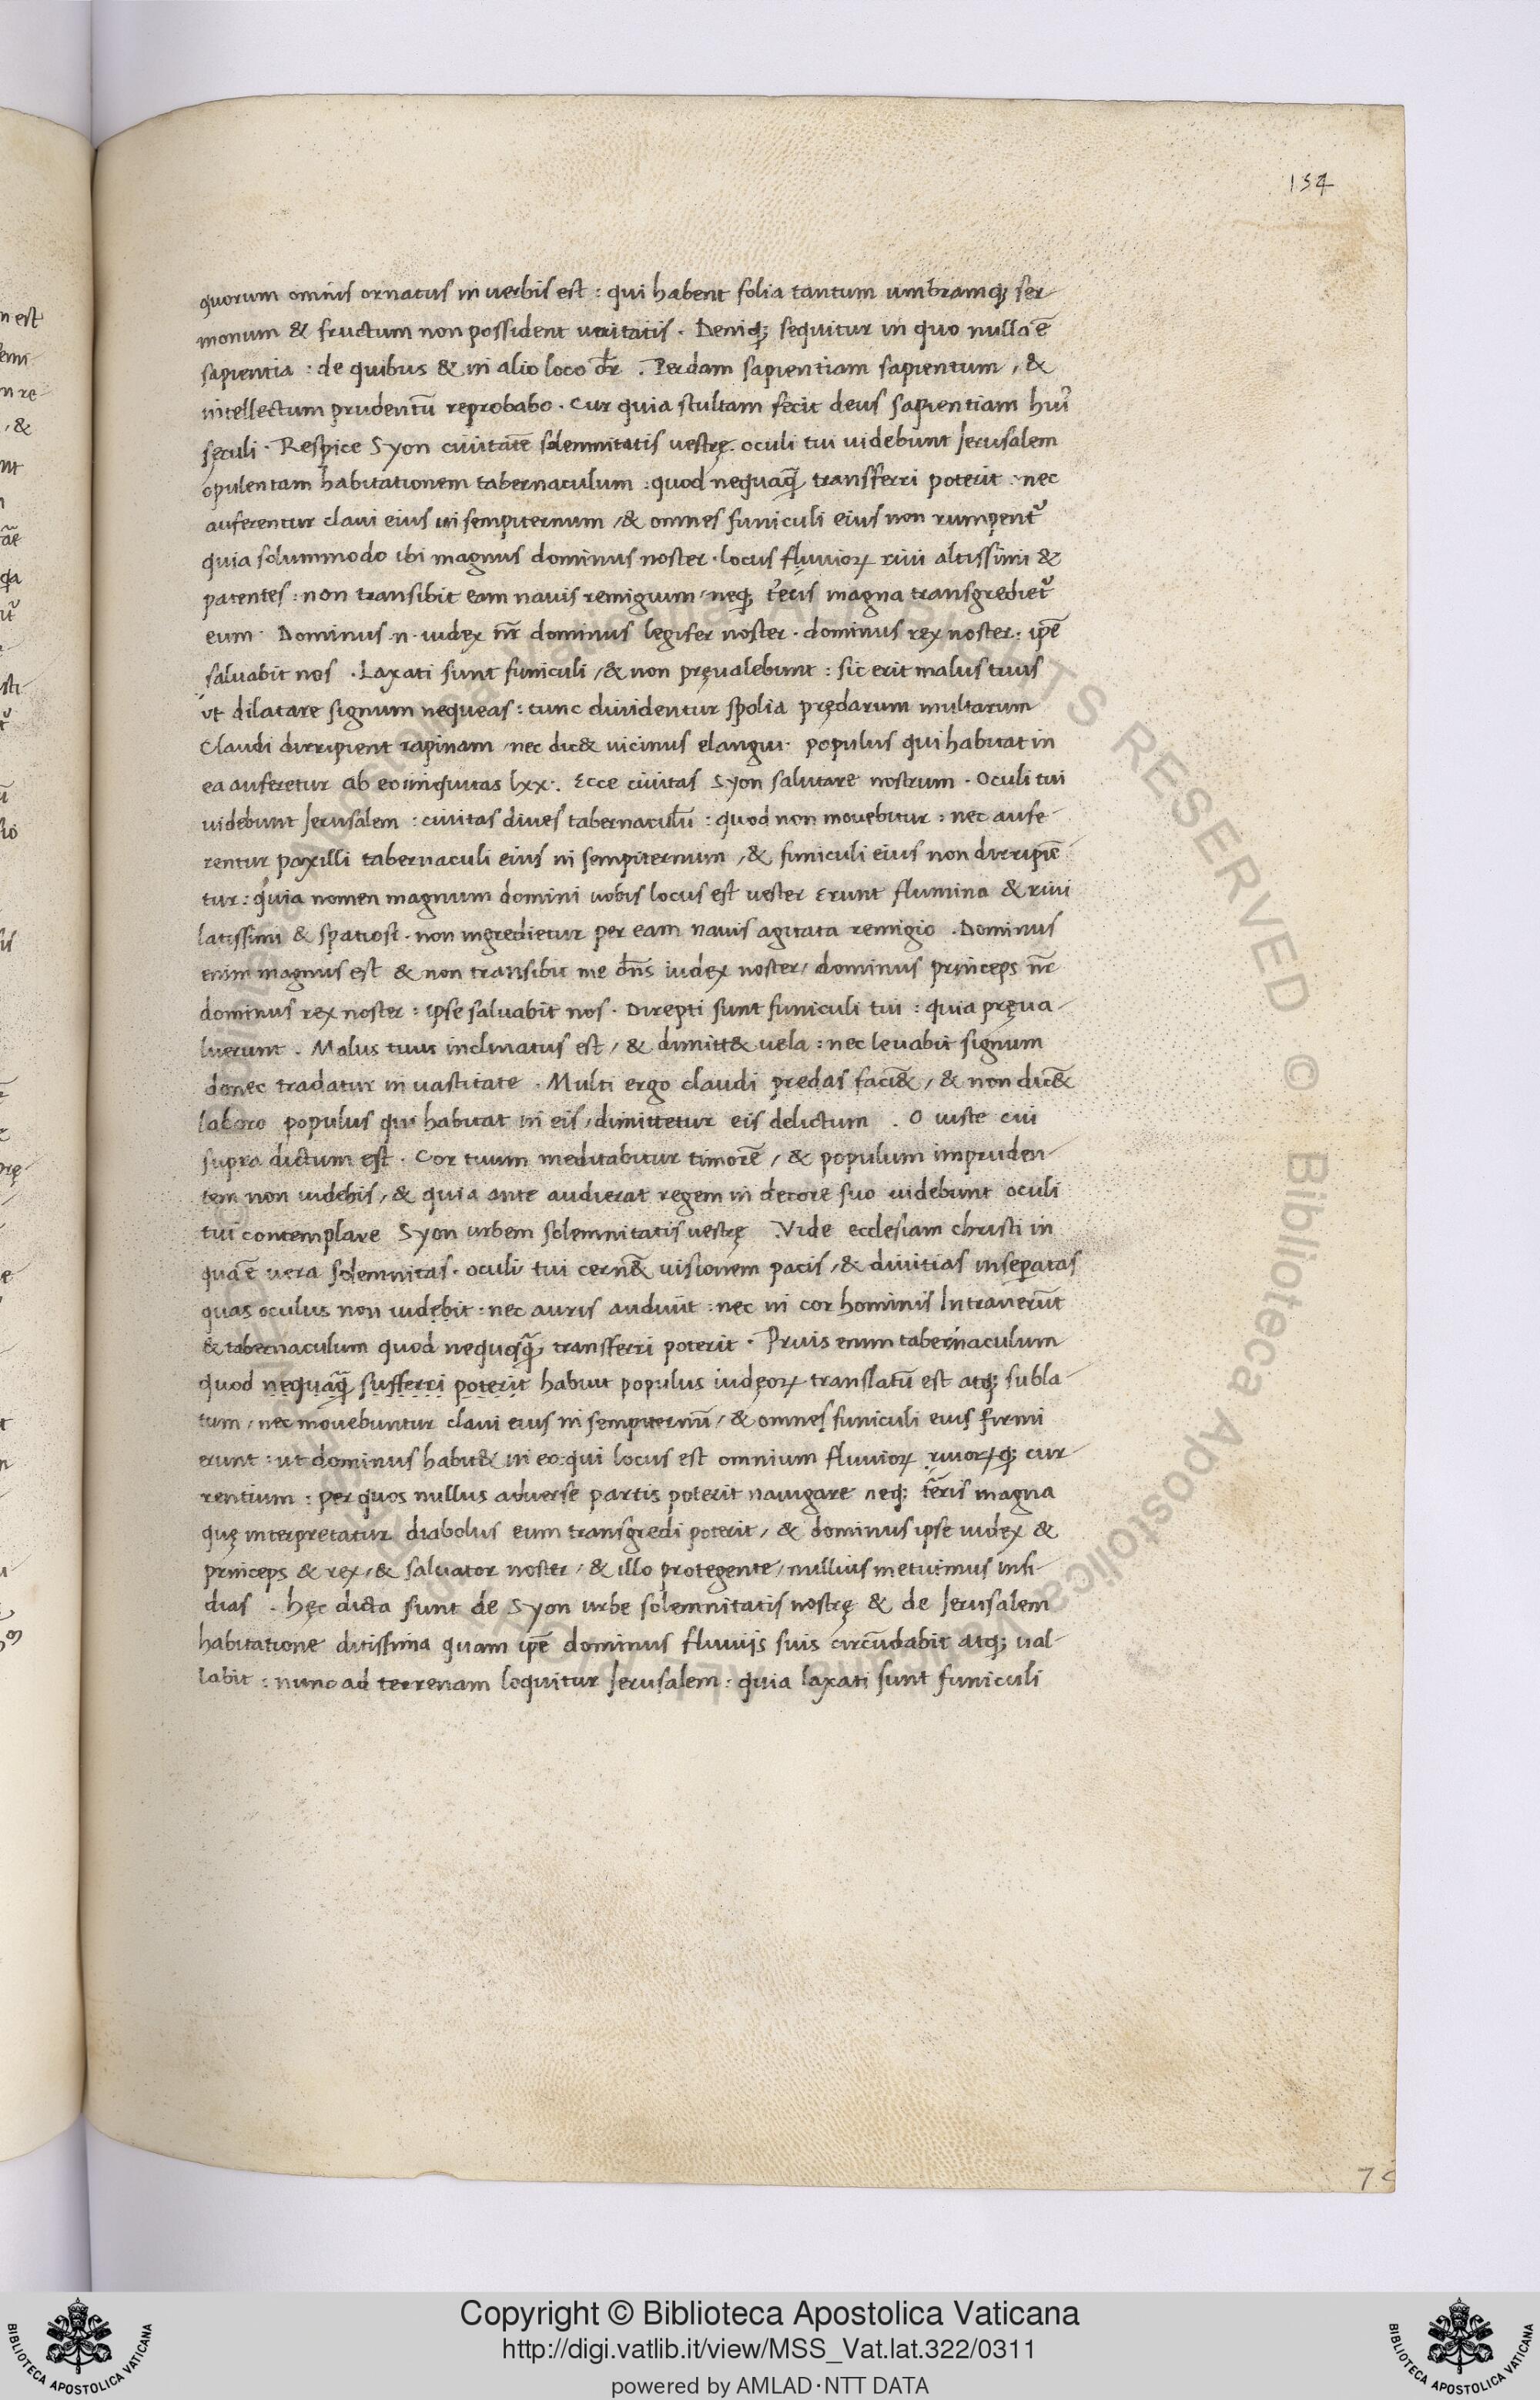 154
quorum omnis ornatus in uerbis est : qui habent folia tantum umbramq; ser-
monum & fructum non possident ueritatis . Deniq; sequitur in quo nulla ē
sapientia : de quibus & in alio loco dr̄ . Perdam sapientiam sapientum , &
intellectum prudentū reprobabo . Cur quia stultam fecit deus sapientiam hui᾽
sęculi . Respice Syon ciuitatē solemnitatis uestrę . oculi tui uidebunt Jerusalem
opulentam habitationem tabernaculum : quod nequaq̄ transferri poterit : nec
auferentur claui eius in sempiternum , & omnes funiculi eius non rumpent᾽
quia solummodo ibi magnus dominus noster . locus fluuioꝝ riui altissimi &
patentes : non transibit eam nauis remigium , neq; t᾽eris magna transgrediet᾽
eum . Dominus .n. iudex nr̄ dominus legifer noster . dominus rex noster : ip̄e
saluabit nos . Laxati sunt funiculi , & non pręualebunt : sic erit malus tuus
ut dilatare signum nequeas : tunc diuidentur spolia prędarum multarum
Claudi dirripient rapinam , nec dic& uicinus elangui . populus qui habitat in
ea auferetur ab eo iniquitas lxx . Ecce ciuitas Syon salutare nostrum . Oculi tui
uidebunt Jerusalem : ciuitas diues tabernaculū : quod non mouebitur : nec aufe-
rentur paxilli tabernaculi eius in sempiternum , & funiculi eius non dirripiē-
tur : quia nomen magnum domini uobis locus est uester erunt flumina & riui
latissimi & spatiosi . non ingredietur per eam nauis agitata remigio . Dominus
enim magnus est & non transibit me dn̄s iudex noster , dominus princeps nr̄
dominus rex noster : ipse saluabit nos . Direpti sunt funiculi tui : quia pręua-
luerunt . Malus tuus inclinatus est , & dimitt& uela : nec leuabit signum
donec tradatur in uastitate . Multi ergo claudi predas faci&̄ , & non dic&̄
laboro populus qui habitat in eis , dimittetur eis delictum . O iuste cui
supra dictum est . Cor tuum meditabitur timorē , & populum impruden-
tem non uidebis , & quia ante audierat regem in decore suo uidebunt oculi
tui contemplare Syon urbem solemnitatis uestrę . Vide ecclesiam christi in
qua ē uera solemnitas . oculi tui cern&̄ uisionem pacis , & diuitias inseparatas
quas oculus non uidebit : nec auris audiuit : nec in cor hominis Intrauerūt
& tabernaculum quod nequaq̄ transferri poterit . Pruis enim tabernaculum
quod nequaq̄ sufferri poterit habuit populus iudęoꝝ translatū est atq; subla-
tum , nec mouebuntur claui eius in sempiternū , & omnes funiculi eius firmi
erunt : ut dominus habit& in eo : qui locus est omnium fluuioꝝ riuoꝝq; cur-
rentium : per quos nullus aduerse partis poterit nauigare neq; t̄eris magna
quę interpretatur diabolus eum transgredi poterit , & dominus ipse iudex &
princeps & rex , & saluator noster , & illo protegente , nullius metuimus insi-
dias . hęc dicta sunt de Syon urbe solemnitatis nostrę & de Jerusalem
habitatione ditissima quam ip̄e dominus fluuijs suis circūdabit atq; ual-
labit : nunc ad terrenam loquitur Jerusalem : quia laxati sunt funiculi
Copyright © Biblioteca Apostolica Vaticana
http://digi.vatlib.it/view/MSS_Vat.lat.322/0311
powered by AMLAD·NTT DATA